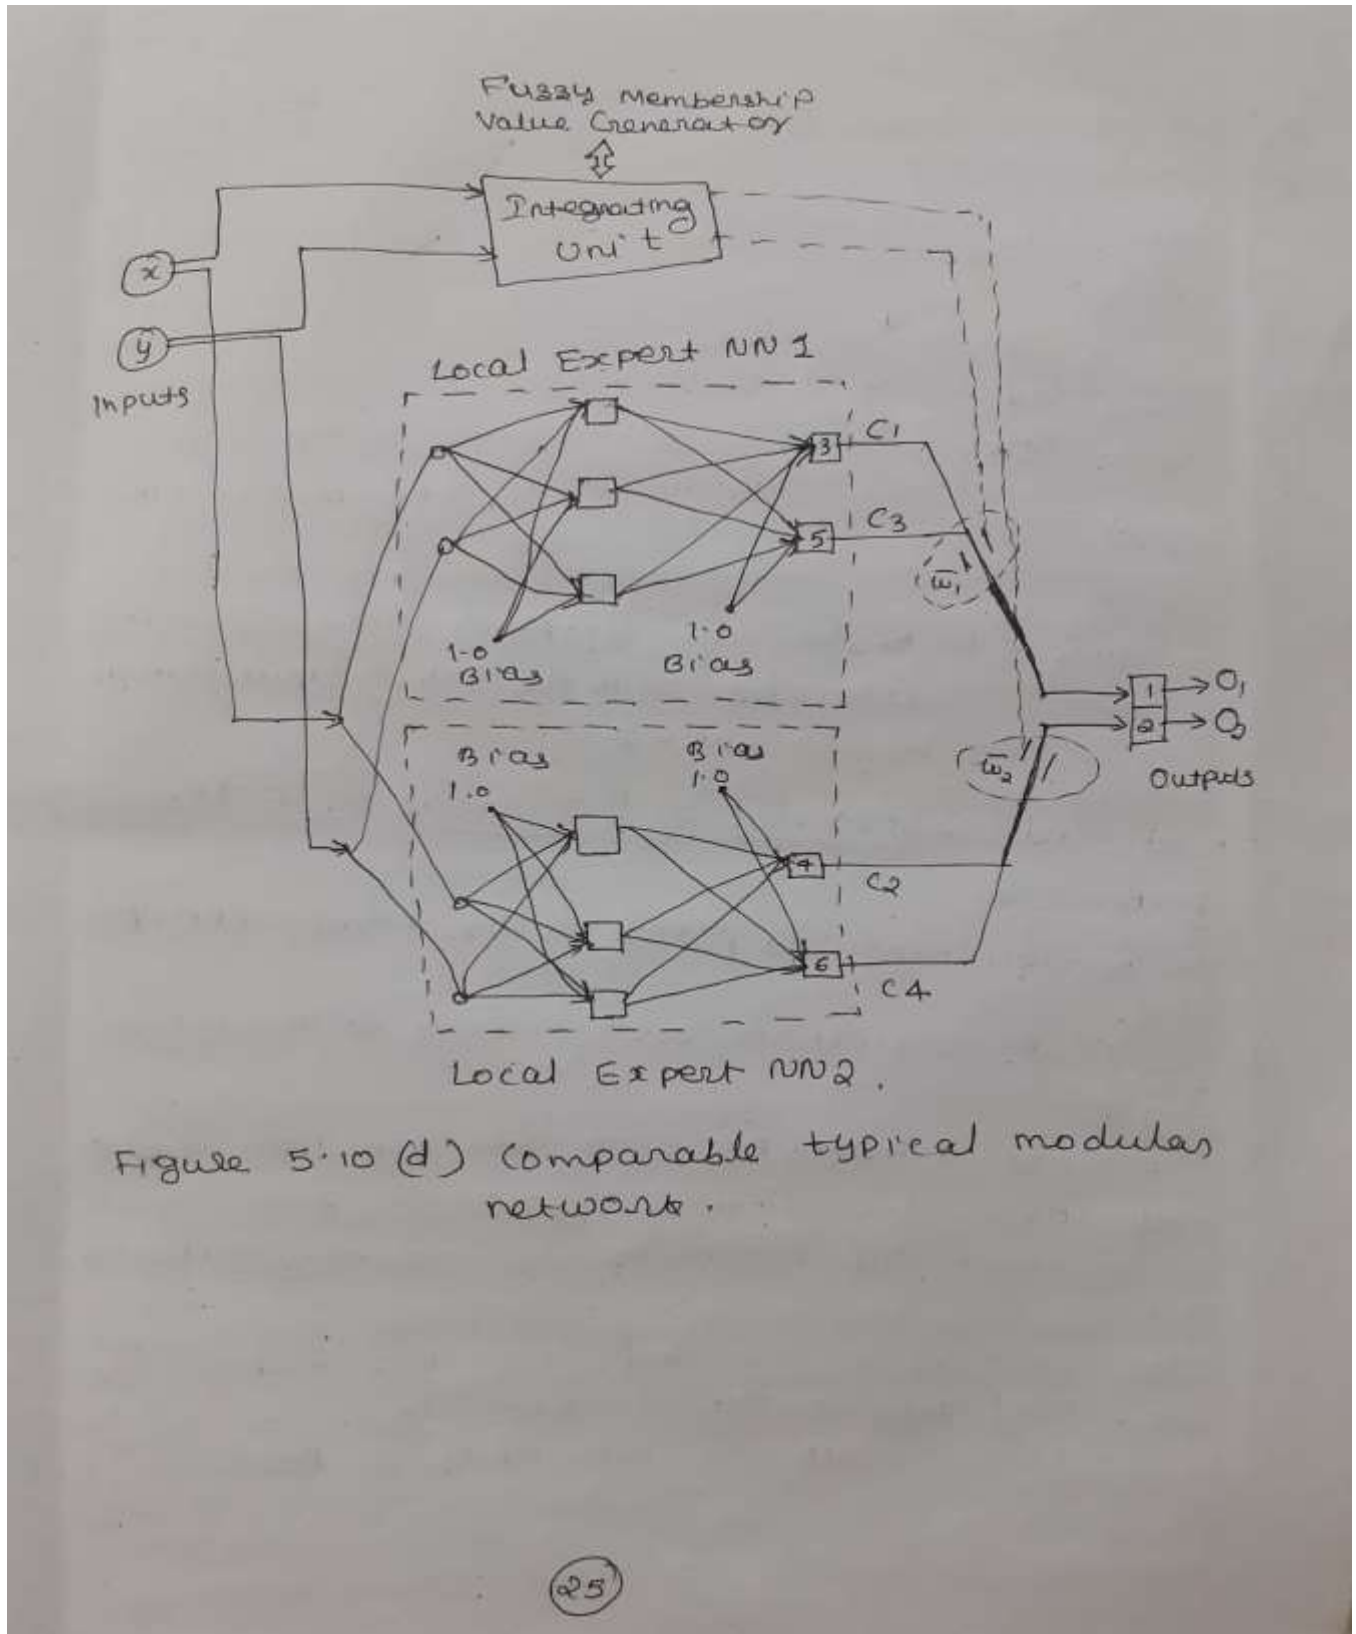 Fuzzy Membership
Value Generator
Integrating
Unit
x
y
Inputs
Local Expert NN 1
3
C1
5
C3
w̅₁
1.0
Bias
1.0
Bias
1
O₁
2
O₂
Outputs
w̅₂
Bias
1.0
Bias
1.0
4
C2
6
C4
Local Expert NN2.
Figure 5.10 (d) Comparable typical modular
network.
25